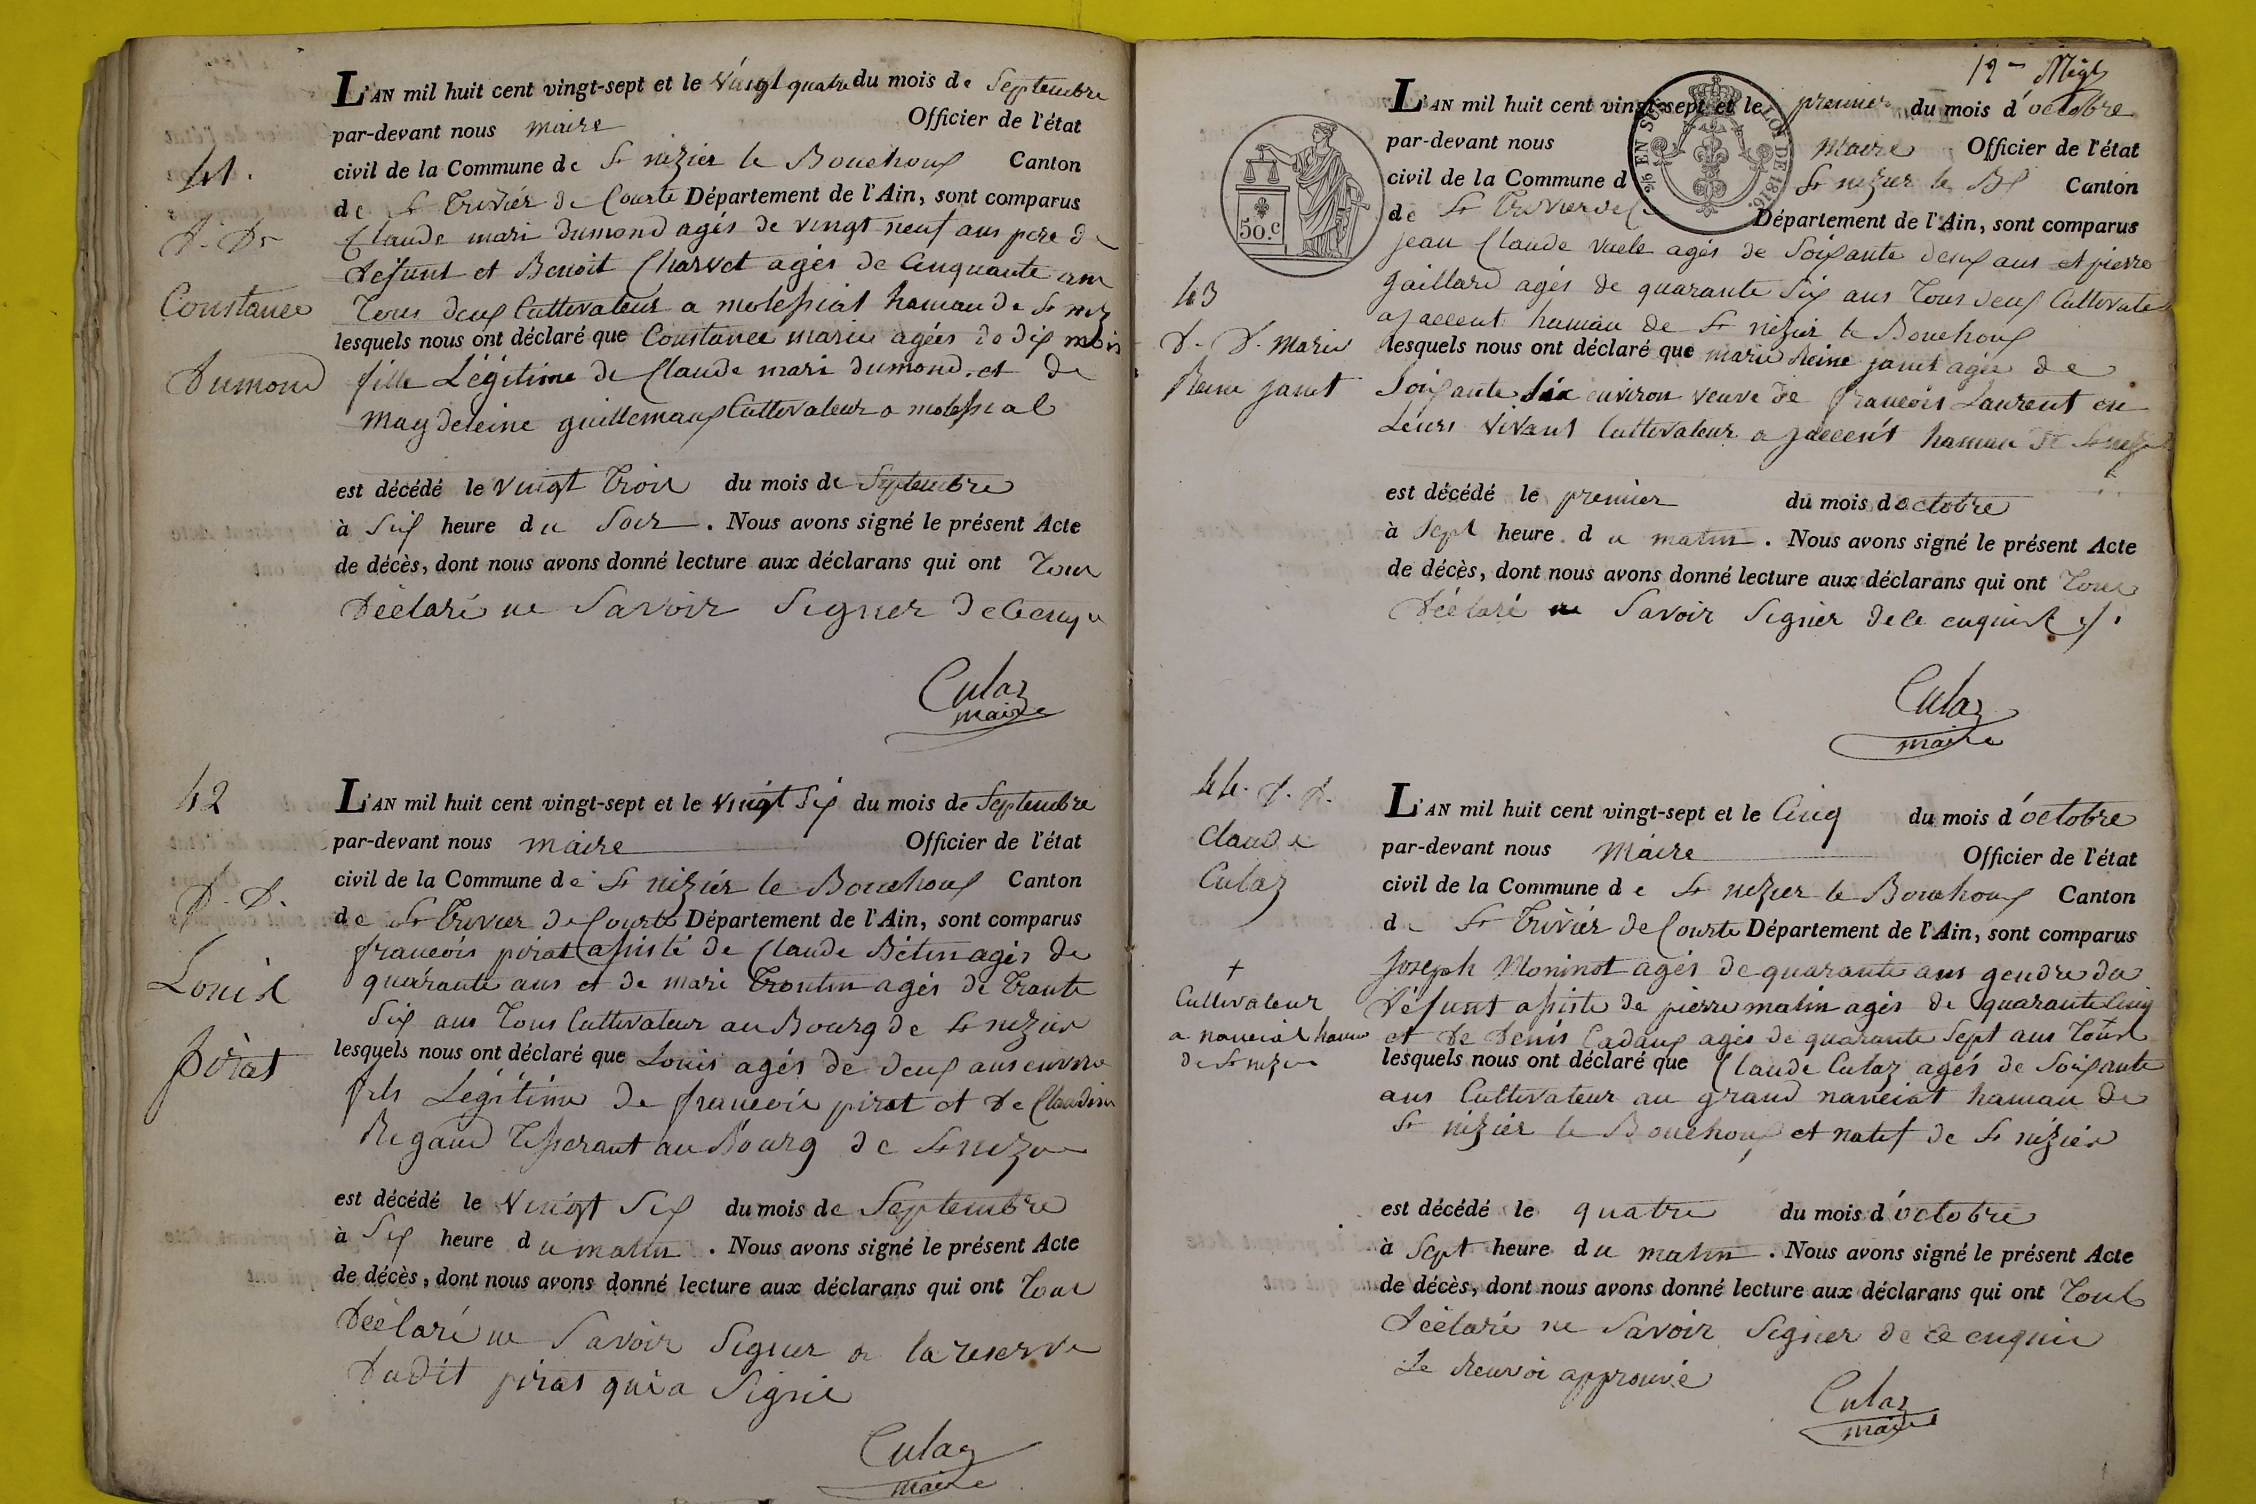 41.
D. Ds
Constance
Dumond
L'AN mil huit cent vingt-sept et le vingt quatre du mois de Septembre
par-devant nous maire Officier de l'état
civil de la Commune de St nizier le Bouchoux Canton
de St Trivier de Courte Département de l'Ain, sont comparus
Claude mari dumond agés de vingt neuf ans pere de
defunt et Benoit Charvet agés de Cinquante un
Tous deux Cultivateur a molessiat hamau de St niz
lesquels nous ont déclaré que Constance marie agées de dix mois
fille Légitime de Claude mari dumond et de
Magdeleine guillemaux Cultivateur a molessiat
est décédé le vingt trois du mois de Septembre
à Six heure du Soir. Nous avons signé le présent Acte
de décès, dont nous avons donné lecture aux déclarans qui ont Tous
Déclaré ne Savoir Signer de ce enqu
Culaz
maire
42
D. D.
Louis
pirat
L'AN mil huit cent vingt-sept et le vingt Six du mois de Septembre
par-devant nous maire Officier de l'état
civil de la Commune de St nizier le Bouchoux Canton
de St Trivier de Courte Département de l'Ain, sont comparus
francois pirat assisté de Claude Bétin agés de
quarante ans et de mari Trontin agés de Trante
Six ans Tous Cultivateur au Bourg de St nizier
lesquels nous ont déclaré que Louis agés de deux ans environ
fils Légitime de francois pirat et de Claudine
Regaud Tisserant au Bourg de St nizier
est décédé le vingt Six du mois de Septembre
à Six heure du matin. Nous avons signé le présent Acte
de décès, dont nous avons donné lecture aux déclarans qui ont Tous
Déclaré ne Savoir Signer a la reserve
Dudit pirat qui a Signé
Culaz
maire
EN SUS LOI DE 1816.
50.c
43
D. D. Marie
Reine janet
L'AN mil huit cent vingt-sept et le premier du mois d'octobre
par-devant nous Maire Officier de l'état
civil de la Commune d St nizier le Bx Canton
de St Trivier de C Département de l'Ain, sont comparus
jean Claude vaele agés de Soixante deux ans et pierre
gaillard agés de quarante Six ans Tous deux Cultivate
a jaccent hamau de St nizier le Bouchoux
lesquels nous ont déclaré que marie Reine janet agée de
Soixante Six environ veuve de francois Laurent en
Leurs vivant Cultivateur a jaccent hamau de St niz
est décédé le premier du mois d'octobre
à Sept heure du matin. Nous avons signé le présent Acte
de décès, dont nous avons donné lecture aux déclarans qui ont Tous
Déclaré ne Savoir Signer de ce enquist
Culaz
maire
44. D. D.
Claude
Culaz
+
Cultivateur
a nanciat hamau
de St nizier
L'AN mil huit cent vingt-sept et le Cinq du mois d'octobre
par-devant nous Maire Officier de l'état
civil de la Commune de St nizier le Bouchoux Canton
de St Trivier de Courte Département de l'Ain, sont comparus
Joseph Moninot agés de quarante ans gendre du
Défunt assisté de pierre matin agés de quarante Cinq
et de Denis Cadaux agés de quarante Sept ans Tous
lesquels nous ont déclaré que Claude Culaz agés de Soixante
ans Cultivateur au grand nanciat hamau de
St nizier le Bouchoux et natif de St nizier
est décédé le quatre du mois d'octobre
à Sept heure du matin. Nous avons signé le présent Acte
de décès, dont nous avons donné lecture aux déclarans qui ont Tous
Déclaré ne Savoir Signer de ce enquis
Le Renvoi approuvé
Culaz
maire